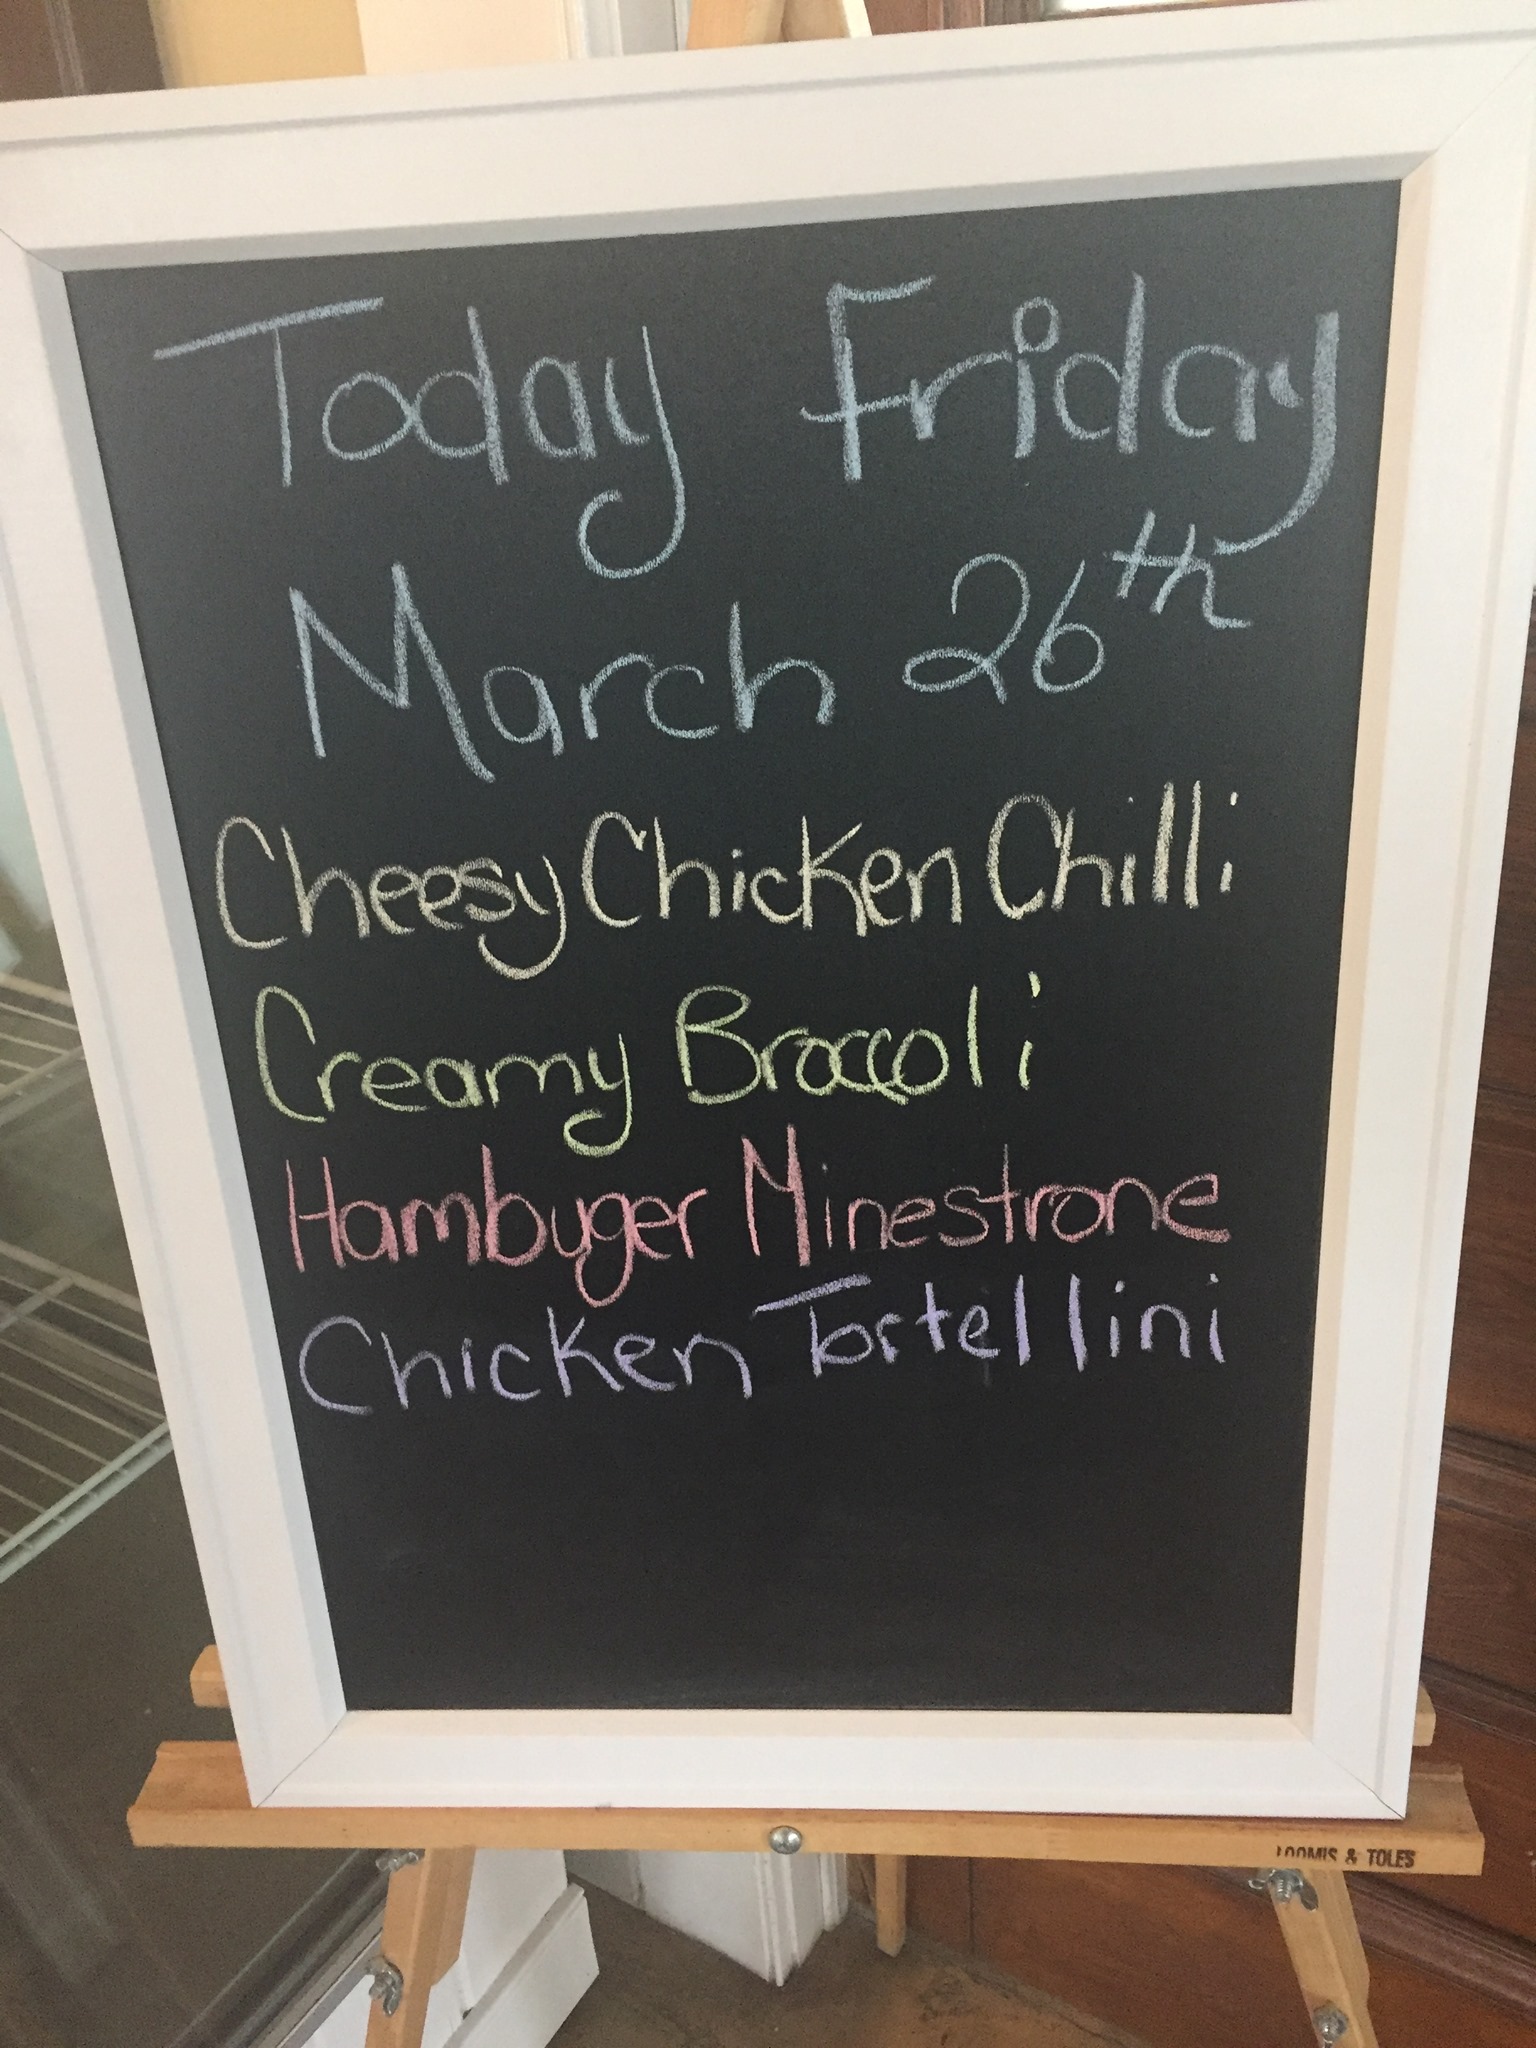 Today Friday
March 26th
Cheesy Chicken Chilli
Creamy Broccoli
Hambuger Minestrone
Chicken Tortellini
LOOMIS & TOLES